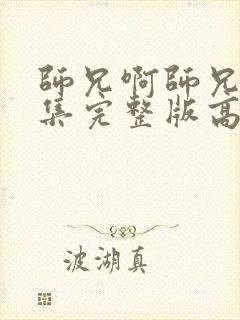 師兄啊師兄
集完整版高
波湖真